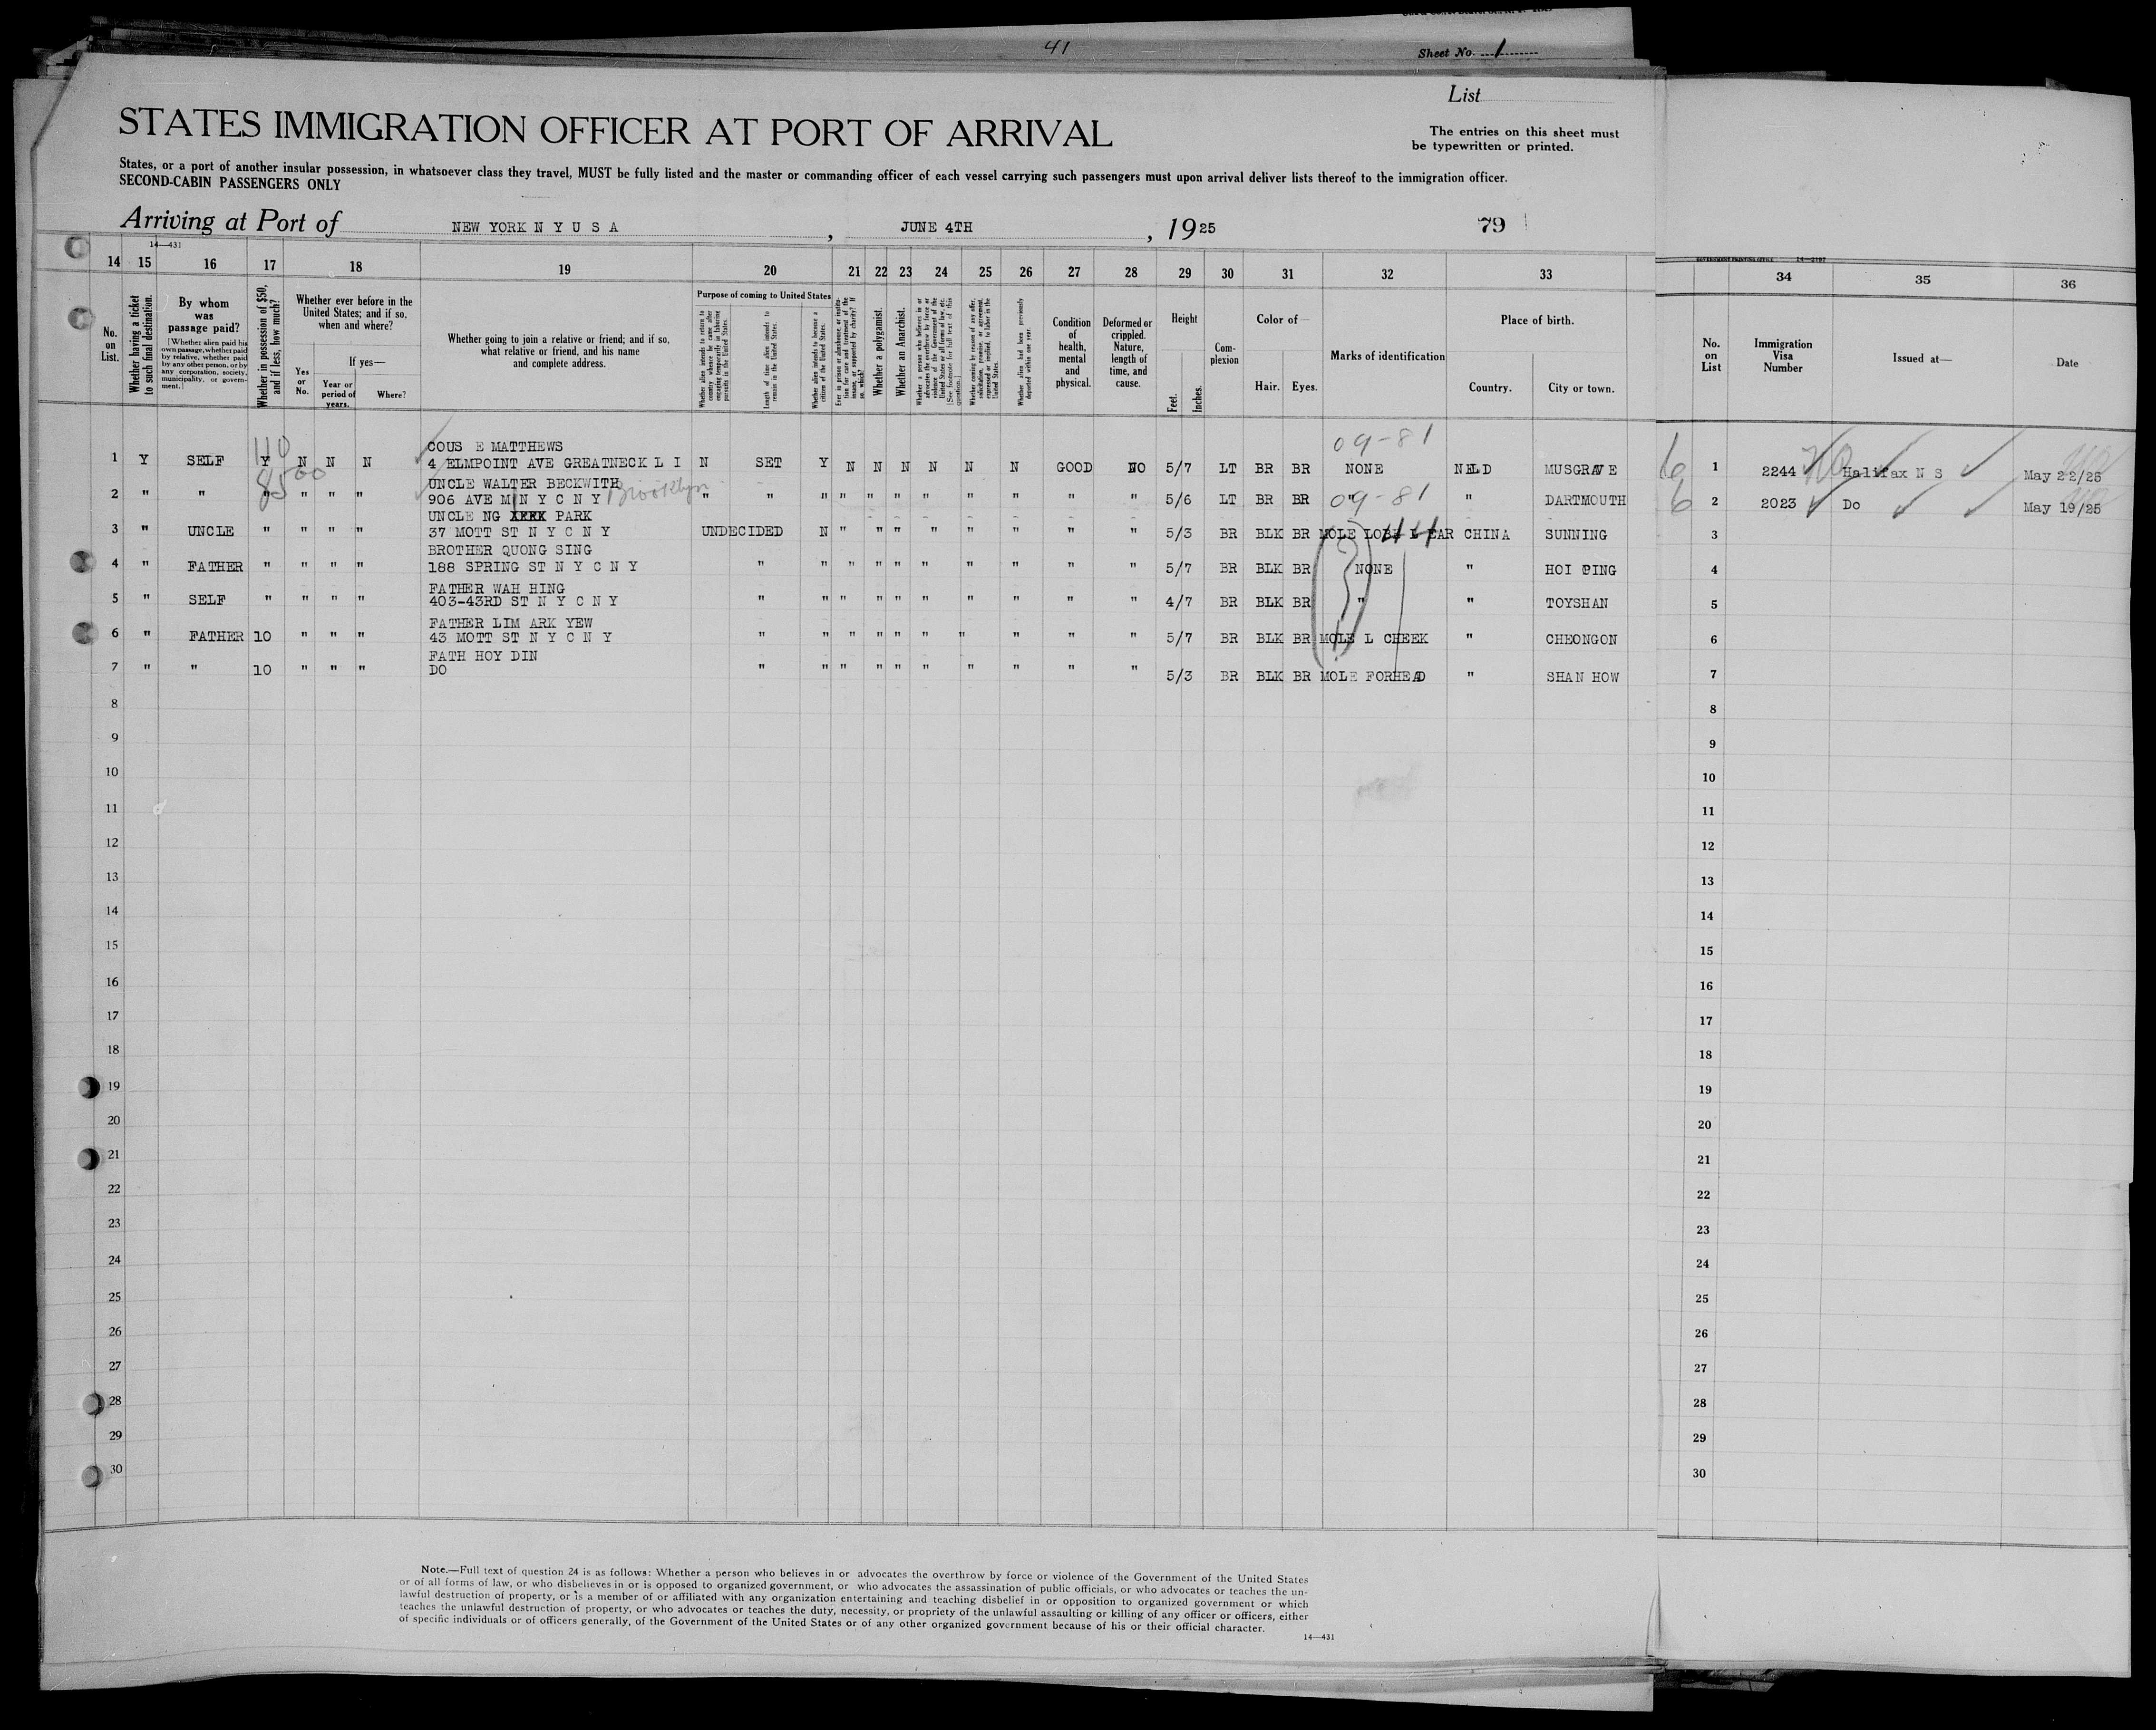 41
Sheet No. 1
List
STATES IMMIGRATION OFFICER AT PORT OF ARRIVAL
The entries on this sheet must
be typewritten or printed.
States, or a port of another insular possession, in whatsoever class they travel, MUST be fully listed and the master or commanding officer of each vessel carrying such passengers must upon arrival deliver lists thereof to the immigration officer.
SECOND-CABIN PASSENGERS ONLY
Arriving at Port of NEW YORK N Y U S A , JUNE 4TH , 1925 79
14—431
14 15 16 17 18 19 20 21 22 23 24 25 26 27 28 29 30 31 32 33 34 35 36
No. on List.
Whether having a ticket to such final destination.
By whom was passage paid?
[Whether alien paid his own passage, whether paid by relative, whether paid by any other person, or by any corporation, society, municipality, or government.]
Whether in possession of $50, and if less, how much?
Whether ever before in the United States; and if so, when and where?
Yes or No.
If yes—
Year or period of years.
Where?
Whether going to join a relative or friend; and if so, what relative or friend, and his name and complete address.
Purpose of coming to United States
Whether alien intends to return to country whence he came after engaging temporarily in laboring pursuits in the United States.
Length of time alien intends to remain in the United States.
Whether alien intends to become a citizen of the United States.
Ever in prison or almshouse, or institution for care and treatment of the insane, or supported by charity? If so, which?
Whether a polygamist.
Whether an Anarchist.
Whether a person who believes in or advocates the overthrow by force or violence of the Government of the United States or all forms of law, etc. [See footnote for full text of this question.]
Whether coming by reason of any offer, solicitation, promise, or agreement, expressed or implied, to labor in the United States.
Whether alien had been previously deported within one year.
Condition of health, mental and physical.
Deformed or crippled. Nature, length of time, and cause.
Height
Feet. Inches.
Complexion
Color of—
Hair. Eyes.
Marks of identification
Place of birth.
Country. City or town.
No. on List
Immigration Visa Number
Issued at—
Date
110 09-81
COUS E MATTHEWS
1 Y SELF Y N N N 4 ELMPOINT AVE GREATNECK L I N SET Y N N N N N N GOOD NO 5/7 LT BR BR NONE NFLD MUSGRAVE 6 1 2244 Halifax N S May 22/25
8500
UNCLE WALTER BECKWITH
2 " " " " " " 906 AVE M N Y C N Y Brooklyn " " " " " " " " " " " 5/6 LT BR BR " 09-81 " DARTMOUTH 6 2 2023 Do May 19/25
UNCLE NG PARK
3 " UNCLE " " " " 37 MOTT ST N Y C N Y UNDECIDED N " " " " " " " " 5/3 BR BLK BR MOLE LOBE L EAR 44 CHINA SUNNING 3
BROTHER QUONG SING
4 " FATHER " " " " 188 SPRING ST N Y C N Y " " " " " " " " " " 5/7 BR BLK BR NONE " HOI PING 4
FATHER WAH HING
5 " SELF " " " " 403-43RD ST N Y C N Y " " " " " " " " " " 4/7 BR BLK BR " " TOYSHAN 5
FATHER LIM ARK YEW
6 " FATHER 10 " " " 43 MOTT ST N Y C N Y " " " " " " " " " " 5/7 BR BLK BR MOLE L CHEEK " CHEONGON 6
FATH HOY DIN
7 " " 10 " " " DO " " " " " " " " " " 5/3 BR BLK BR MOLE FORHEAD " SHAN HOW 7
8 8
9 9
10 10
11 11
12 12
13 13
14 14
15 15
16 16
17 17
18 18
19 19
20 20
21 21
22 22
23 23
24 24
25 25
26 26
27 27
28 28
29 29
30 30
Note.—Full text of question 24 is as follows: Whether a person who believes in or advocates the overthrow by force or violence of the Government of the United States
or of all forms of law, or who disbelieves in or is opposed to organized government, or who advocates the assassination of public officials, or who advocates or teaches the un-
lawful destruction of property, or is a member of or affiliated with any organization entertaining and teaching disbelief in or opposition to organized government or which
teaches the unlawful destruction of property, or who advocates or teaches the duty, necessity, or propriety of the unlawful assaulting or killing of any officer or officers, either
of specific individuals or of officers generally, of the Government of the United States or of any other organized government because of his or their official character.
14—431